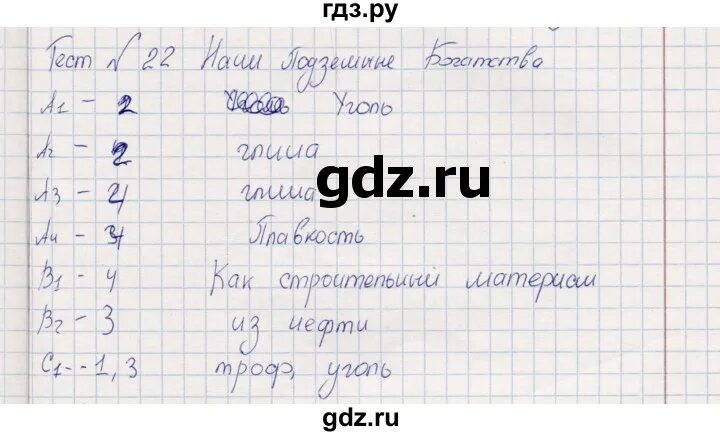 гдз.ру
Тест № 22 Наши Подземные Богатства
А1 – 2 Уголь
А2 – 2 глина
А3 – 4 глина
А4 – Плавкость
В1 – 4 Как строительный материал
В2 – 3 из нефти
С1 -- 1, 3 торф, уголь
gdz.ru
gdz.ru